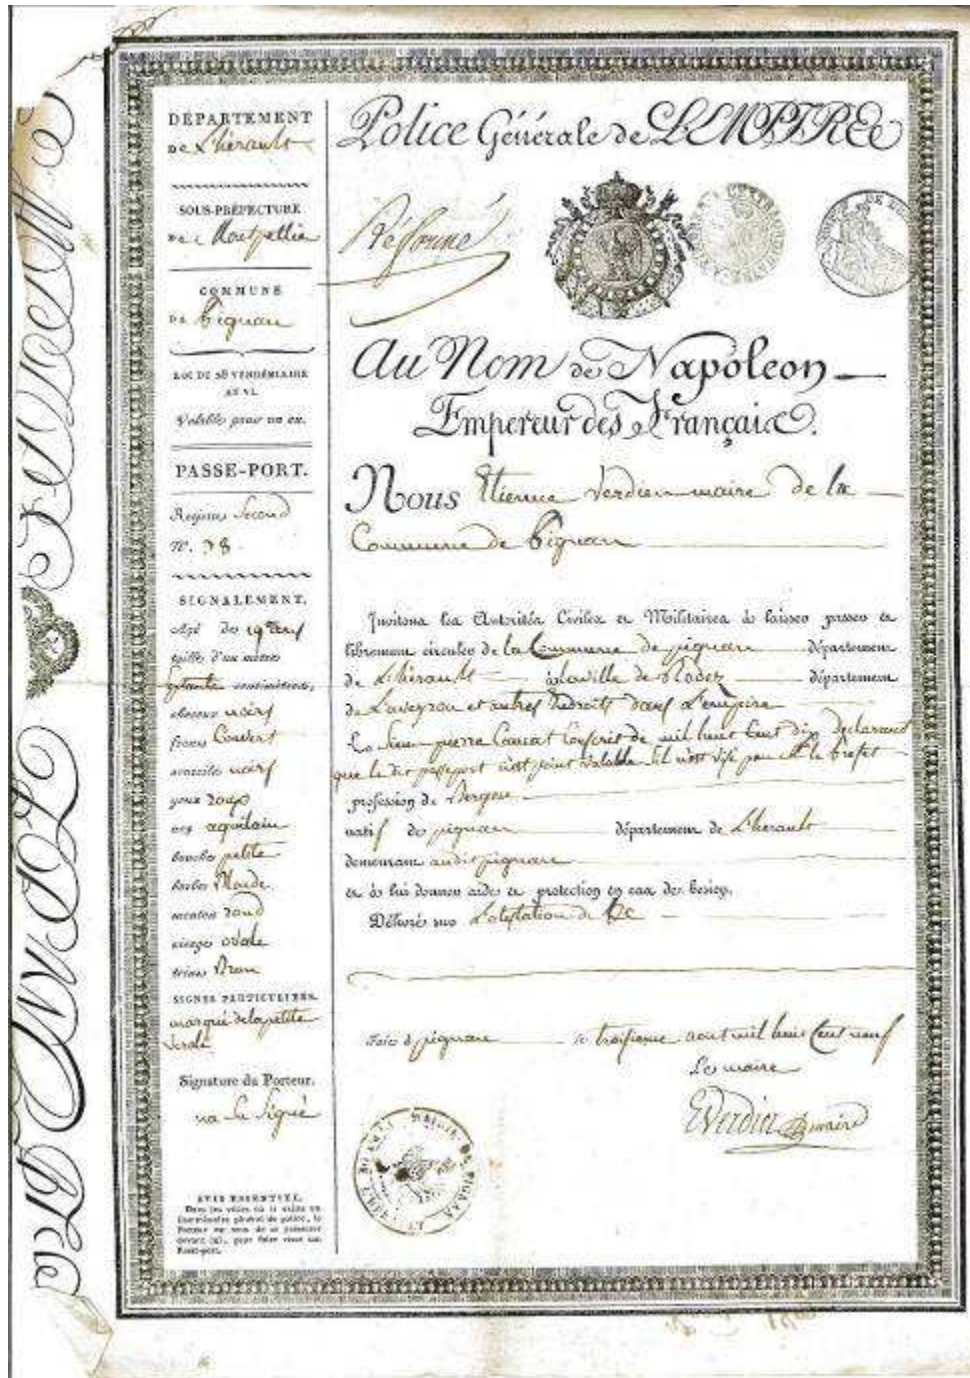 DÉPARTEMENT
DE L'hérault
SOUS-PRÉFECTURE
DE Montpellier
COMMUNE
DE pignan
LOI DU 28 VENDÉMIAIRE
AN VI.
Valable pour un an.
PASSE-PORT.
Registre Second
N°. 38
SIGNALEMENT.
âgé de 19 ans
taille d'un mètre
septante centimètres,
cheveux noirs
front Couvert
sourcils noirs
yeux roux
nez aquilain
bouche petite
barbe blonde
menton rond
visage ovale
teint brun
SIGNES PARTICULIERS.
marqué de la petite
verole
Signature du Porteur.
na Su Signé
AVIS ESSENTIEL.
Dans les villes où il existe un
Commissaire général de police, le
Porteur est tenu de se présenter
devant lui, pour faire viser son
Passe-port.
Police Générale de L'EMPIRE
Au Nom de Napoléon
Empereur des Français.
Nous Etienne Verdier maire de la
Commune de pignan
Invitons les Autorités Civiles et Militaires à laisser passer et
librement circuler de la Commune de pignan département
de L'hérault à la ville de Rodez département
de Laveyron et autres endroits dans L'empire
Le Sieur pierre Conscrit de mil huit Cent dix Declarant
que le dit passeport n'est point valable s'il n'est visé par Mr le prefet
profession de Berger
natif de pignan département de L'herault
demeurant audit pignan
et à lui donner aide et protection en cas de besoin.
Délivré sur L'atestation de
Fait à pignan le troisieme aout mil huit Cent neuf
Le maire
EVerdier maire